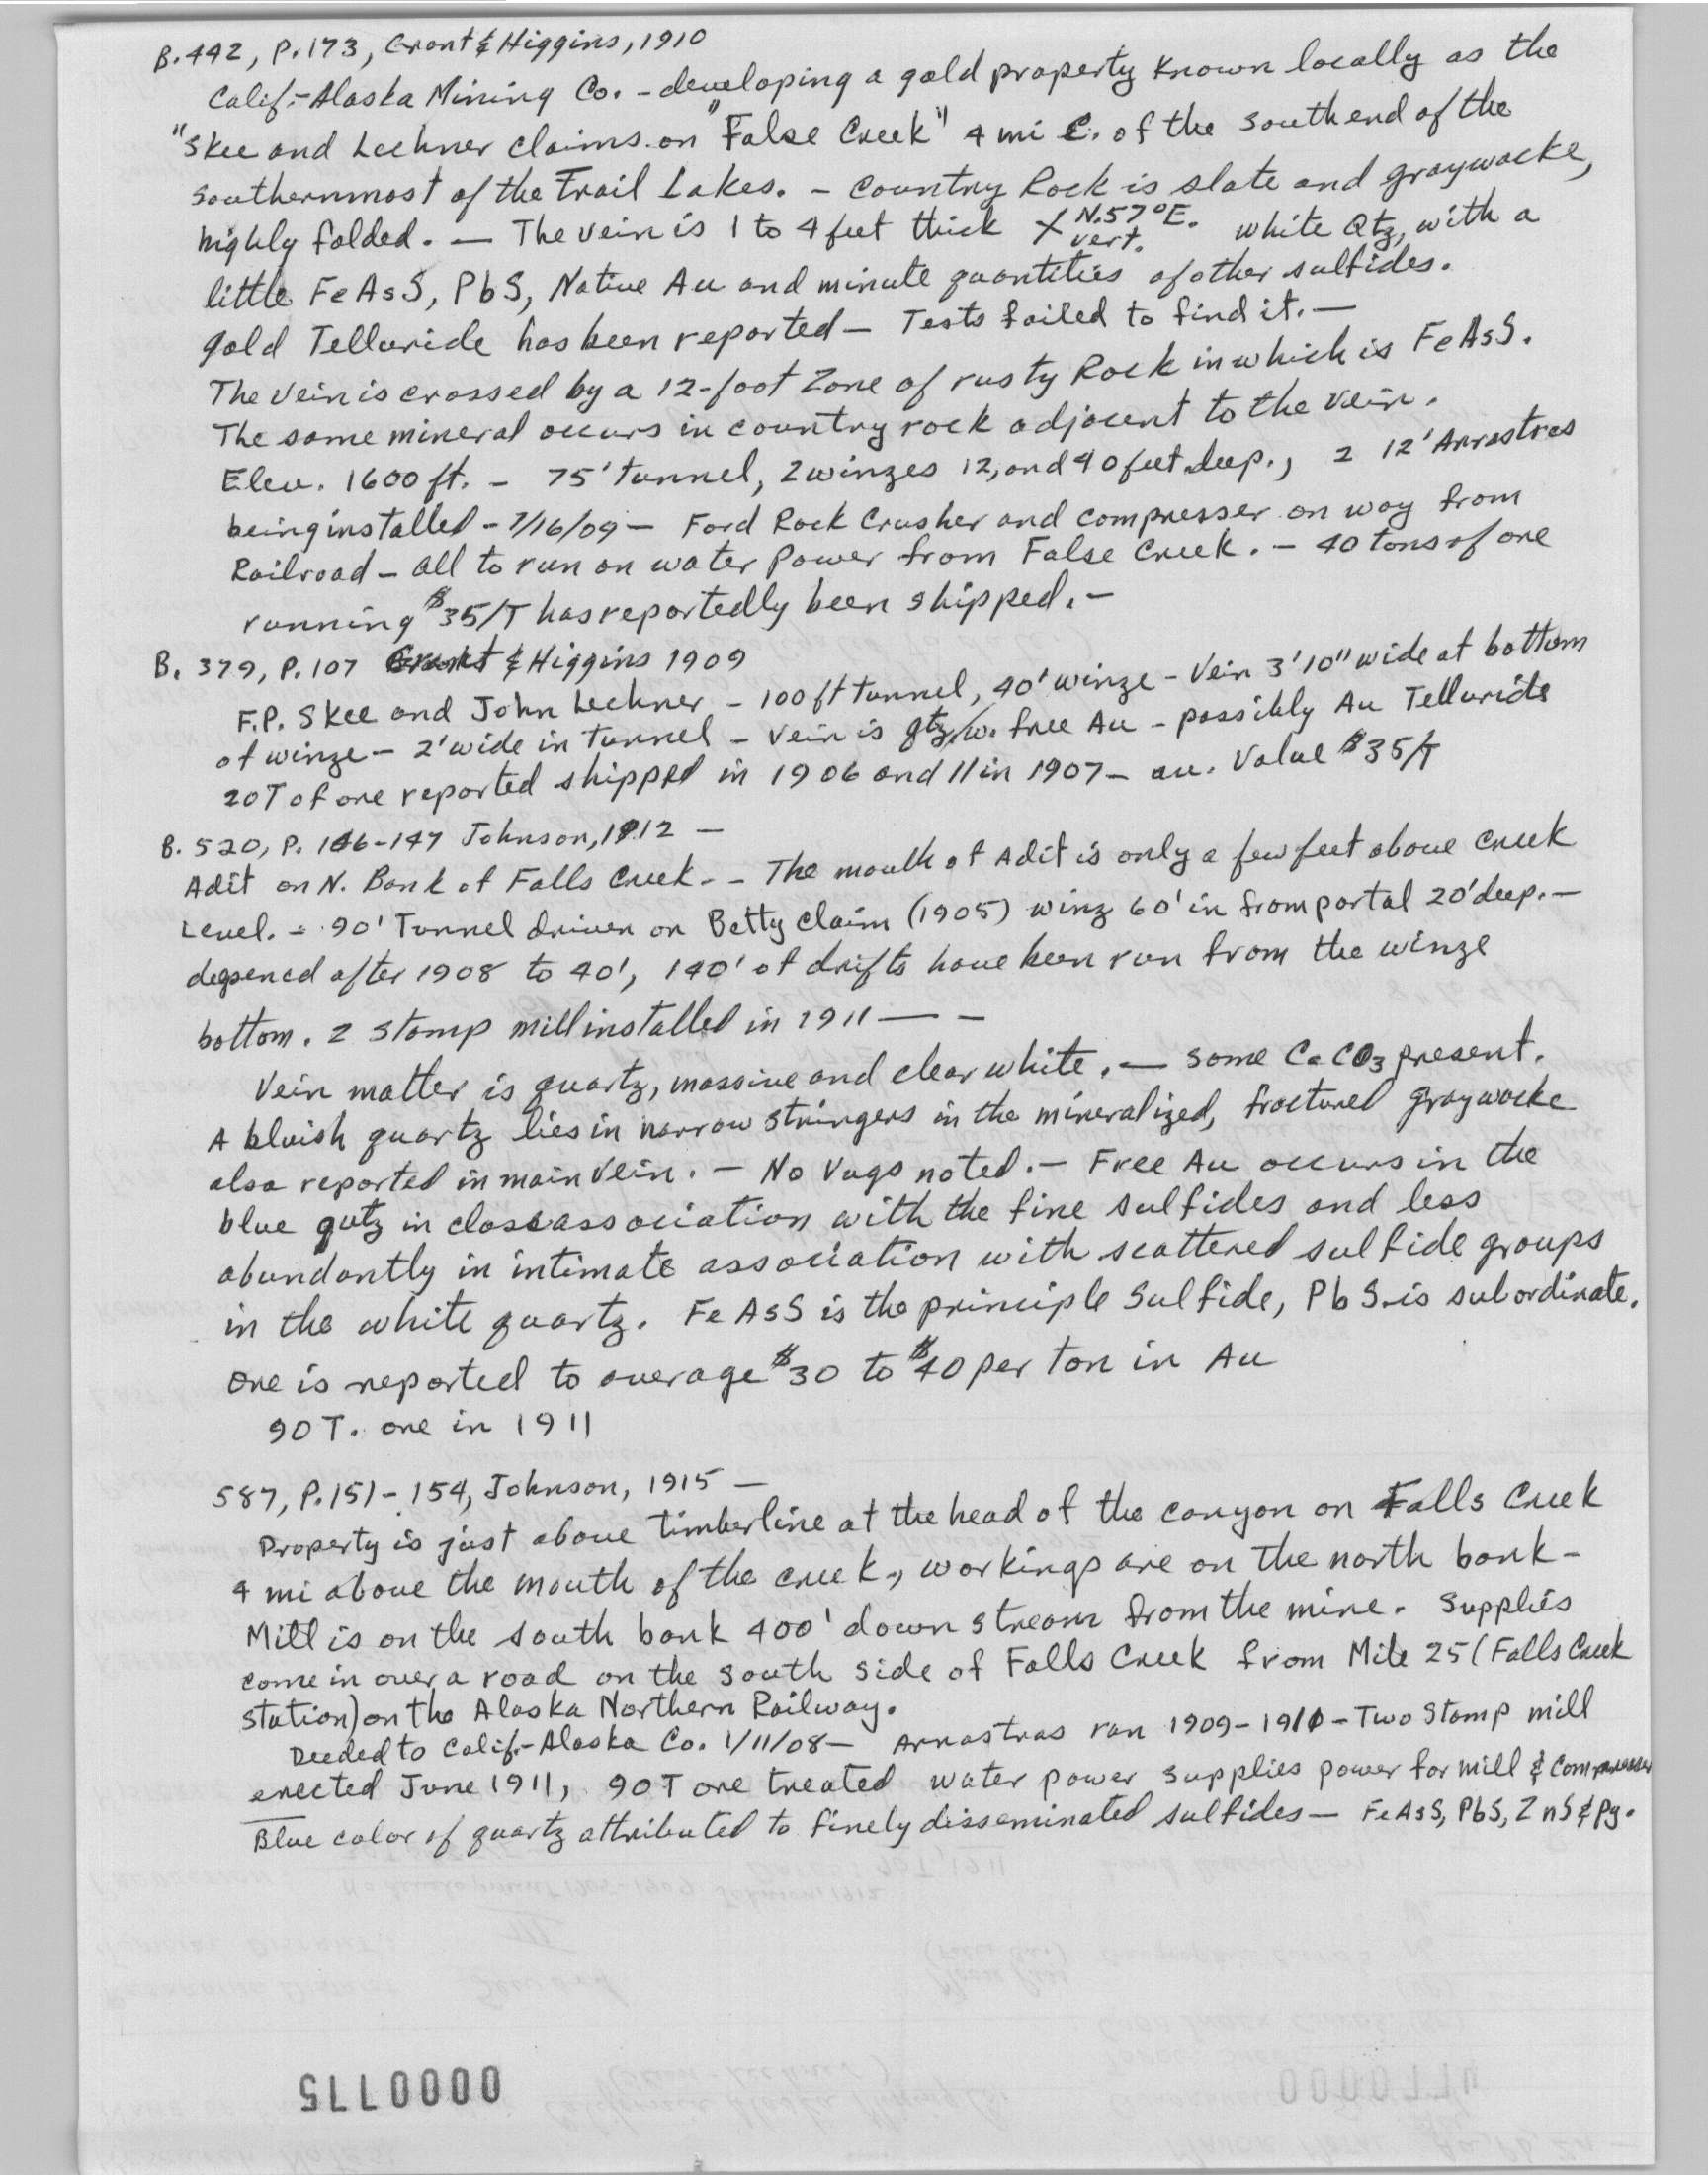 B. 442, P. 173, Grant & Higgins, 1910
Calif.-Alaska Mining Co. - developing a gold property known locally as the
"Skee and Lechner claims on "False Creek" 4 mi E. of the south end of the
southernmost of the Trail Lakes. - Country Rock is slate and graywacke,
highly folded. — The vein is 1 to 4 feet thick N.57°E. vert. white Qtz, with a
little FeAsS, PbS, Native Au and minute quantities of other sulfides.
gold Telluride has been reported — Tests failed to find it. —
The vein is crossed by a 12-foot zone of rusty Rock in which is FeAsS.
The same mineral occurs in country rock adjacent to the vein.
Elev. 1600 ft. - 75' tunnel, 2 winzes 12, and 40 feet deep., 2 12' Arrastres
being installed - 7/16/09 - Ford Rock Crusher and compresser on way from
Railroad - all to run on water Power from False Creek. - 40 tons of ore
running $35/T has reportedly been shipped. -
B. 379, P. 107 Grant & Higgins 1909
F.P. Skee and John Lechner - 100 ft tunnel, 40' winze - Vein 3'10" wide at bottom
of winze - 2' wide in tunnel - Vein is qtz w. free Au - possibly Au Telluride
20T of ore reported shipped in 1906 and 11 in 1907 - av. Value $35/T
B. 520, P. 146-147 Johnson, 1912 —
Adit on N. Bank of Falls Creek. - The mouth of Adit is only a few feet above creek
Level. - 90' Tunnel driven on Betty claim (1905) winz 60' in from portal 20' deep. -
deepened after 1908 to 40', 140' of drifts have been run from the winze
bottom. 2 stamp mill installed in 1911 — -
Vein matter is quartz, massive and clear white. — some CaCO3 present.
A bluish quartz lies in narrow stringers in the mineralized, fractured graywacke
also reported in main vein. - No Vugs noted. - Free Au occurs in the
blue qutz in close association with the fine sulfides and less
abundantly in intimate association with scattered sulfide groups
in the white quartz. FeAsS is the principle sulfide, PbS is subordinate.
Ore is reported to average $30 to $40 per ton in Au
90 T. ore in 1911
587, P. 151-154, Johnson, 1915 —
Property is just above timberline at the head of the canyon on Falls Creek
4 mi above the mouth of the creek, workings are on the north bank -
Mill is on the south bank 400' down stream from the mine. Supplies
come in over a road on the south side of Falls Creek from Mile 25 (Falls Creek
station) on the Alaska Northern Railway.
Deeded to Calif.-Alaska Co. 1/11/08 - Arrastras ran 1909-1910 - Two Stamp mill
erected June 1911, 90T ore treated water power supplies power for mill & compresser
Blue color of quartz attributed to finely disseminated sulfides — FeAsS, PbS, ZnS & Py.
00001175